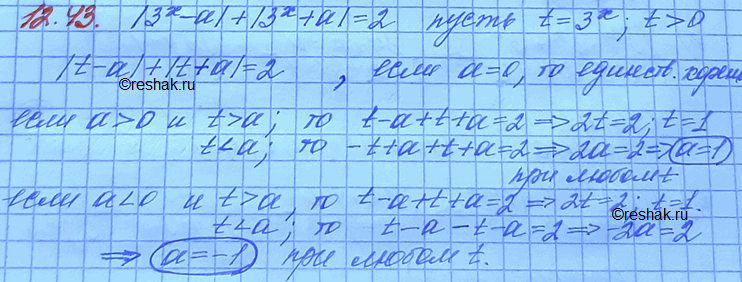 12.43. |3ˣ-a|+|3ˣ+a|=2 пусть t=3ˣ; t>0
|t-a|+|t+a|=2, если a=0, то единств. корень
©reshak.ru
если a>0 и t>a; то t-a+t+a=2 ⇒ 2t=2; t=1
t<a; то -t+a+t+a=2 ⇒ 2a=2 ⇒ a=1
при любом t
если a<0 и t>a, то t-a+t+a=2 ⇒ 2t=2; t=1.
©reshak.ru
t<a; то t-a-t-a=2 ⇒ -2a=2
⇒ a=-1 при любом t.